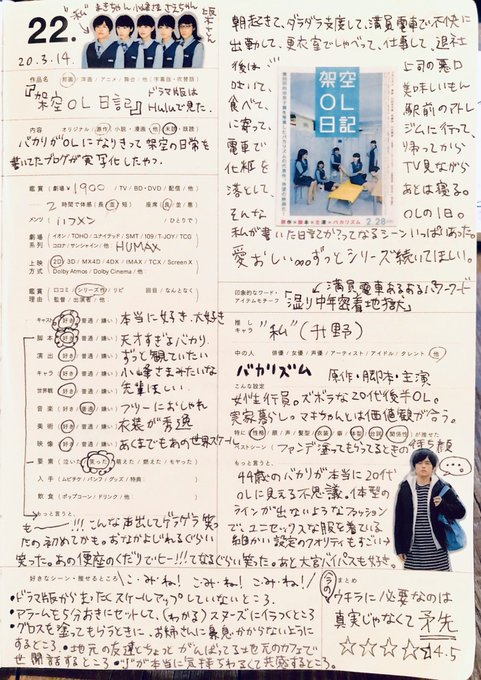 22.
"私" まきちゃん 小峰さま さえちゃん 坂本さん
20.3.14.
作品名 邦画/洋画/アニメ/舞台/他(字幕版・吹替版)
『架空OL日記』
ドラマ版は
Huluで見た。
内容 オリジナル/原作(小説・漫画・他)未読・既読
バカリがOLになりきって架空の日常を
書いてたブログが実写化したやつ。
鑑賞(劇場¥1900/TV/BD・DVD/配信/他)
2時間で体感(長・並・短) 座席(良・並・悪)
メンツ(1フメン /ひとりで)
劇場 イオン/TOHO/ユナイテッド/SMT/109/T-JOY/TCG
系列 コロナ/サンシャイン/他 HUMAX
上映 2D/3D/MX4D/4DX/IMAX/TCX/Screen X
方式 Dolby Atmos/Dolby Cinema/他
鑑賞 口コミ/シリーズ作/リピ 回目/なんとなく
理由 監督/出演者/他
キャスト(好き/普通/嫌い) 本当に好き、大好き
脚本(好き/普通/嫌い) 天才すぎるバカリ。
演出(好き/普通/嫌い) ずっと観ていたい
キャラ(好き/普通/嫌い) 小峰さまみたいな
世界観(好き/普通/嫌い) 先輩ほしい。
音楽(好き/普通/嫌い) フツーにおしゃれ
美術(好き/普通/嫌い) 衣装が秀逸
映像(好き/普通/嫌い) あくまでもあの世界スケール。
要素(泣いた/笑った/萌えた/燃えた/モヤった)
入手(ムビチケ/パンフ/グッズ/特典)
飲食(ポップコーン/ドリンク/他)
もっと言うと、
も〜!!!こんな声出してゲラゲラ笑っ
たの初めてかも。おなかよじれるぐらい
笑った。あの便座のくだりでヒー!!!てなるぐらい笑った。あと大宮バイパスも好き。
好きなシーン・推せるところ
\こ・み・ね! こ・み・ね! こ・み・ね!/
・ドラマ版からまったくスケールアップしていないところ。
・アラームも5分おきにセットして、(わかる)スヌーズにイラつくところ
・グロスを塗ってもらうときに、お姉さんに鼻息かからないように
するところ。・地元の友達とちょっとがんばってる地元のカフェで
世間話するところ
朝起きて、ダラダラ支度して、満員電車で不快に
出勤して、更衣室でしゃべって、仕事して、退社
後は、上司の悪口
吐いて、美味しいもん
食べて、駅前のアトレ
に寄って、ジムに行って、
電車で帰ってから
化粧をTV見ながら
落としてあとは寝る。
そんなOLの1日。
架空
OL
日記
原作・脚本・主演 バカリズム
2.28
私が書いた日記とか?ってなるシーンいっぱいあった。
愛おしい∞ずっとシリーズ続いてほしい。
印象的なワード・
アイテムモチーフ
満員電車あるあるパワーワード
「湿り中年密着地獄」
推し
キャラ
"私"(升野)
中の人 俳優/女優/声優/アーティスト/アイドル/タレント/他
バカリズム 原作・脚本・主演
こんな設定
女性行員。ズボラな20代後半OL。
実家暮らし。マキちゃんとは価値観が合う。
特に(性格/顔/声/髪型/衣装/癖/体型/台詞/関係性)が推せた
ベストシーン
ファンデ塗ってもらってるときの
もっと言うと、
44歳のバカリが本当に20代
OLに見える不思議。体型の
ラインが出ないようなファッション
で、ユニセックスな服を着ている
細かい設定のクオリティもすごい
今のまとめ
ウキラに必要なのは
真実じゃなくて矛先
☆☆☆☆☆4.5